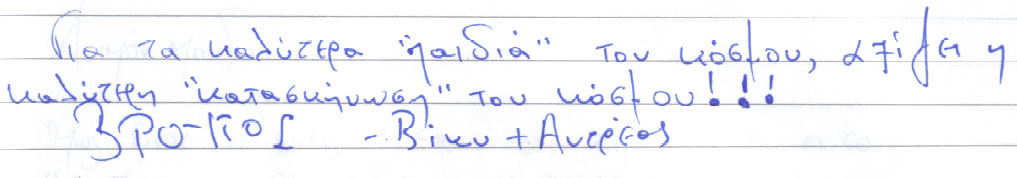 Για τα καλύτερα "παιδιά" του κόσμου, αξίζει η
καλύτερη "κατασκήνωση" του κόσμου!!!
- Βίκυ + Ανδρέας